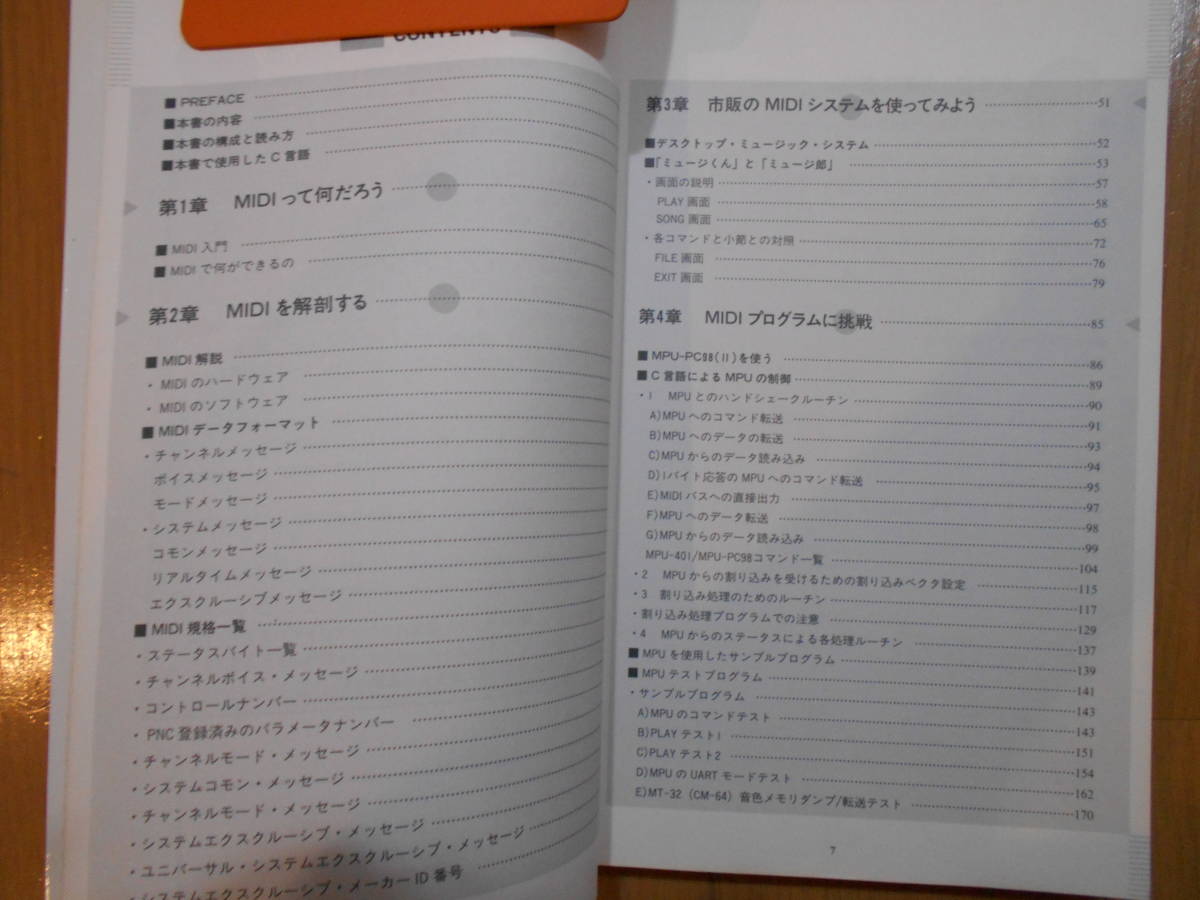 CONTENTS
■PREFACE
■本書の内容
■本書の構成と読み方
■本書で使用したC言語
第1章 MIDIって何だろう
■MIDI入門
■MIDIで何ができるの
第2章 MIDIを解剖する
■MIDI解説
・MIDIのハードウェア
・MIDIのソフトウェア
■MIDIデータフォーマット
・チャンネルメッセージ
ボイスメッセージ
モードメッセージ
・システムメッセージ
コモンメッセージ
リアルタイムメッセージ
エクスクルーシブメッセージ
■MIDI規格一覧
・ステータスバイト一覧
・チャンネルボイス・メッセージ
・コントロールナンバー
・PNC登録済みのパラメータナンバー
・チャンネルモード・メッセージ
・システムコモン・メッセージ
・チャンネルモード・メッセージ
・システムエクスクルーシブ・メッセージ
・ユニバーサル・システムエクスクルーシブ・メッセージ
・システムエクスクルーシブ・メーカーID番号
第3章 市販のMIDIシステムを使ってみよう 51
■デスクトップ・ミュージック・システム 52
■「ミュージくん」と「ミュージ郎」 53
・画面の説明 57
PLAY画面 58
SONG画面 65
・各コマンドと小節との対照 72
FILE画面 76
EXIT画面 79
第4章 MIDIプログラムに挑戦 85
■MPU-PC98(II)を使う 86
■C言語によるMPUの制御 89
・1 MPUとのハンドシェークルーチン 90
A)MPUへのコマンド転送 91
B)MPUへのデータの転送 93
C)MPUからのデータ読み込み 94
D)1バイト応答のMPUへのコマンド転送 95
E)MIDIバスへの直接出力 97
F)MPUへのデータ転送 98
G)MPUからのデータ読み込み 99
MPU-401/MPU-PC98コマンド一覧 104
・2 MPUからの割り込みを受けるための割り込みベクタ設定 115
・3 割り込み処理のためのルーチン 117
・割り込み処理プログラムでの注意 129
・4 MPUからのステータスによる各処理ルーチン 137
■MPUを使用したサンプルプログラム 139
■MPUテストプログラム 141
・サンプルプログラム 143
A)MPUのコマンドテスト 143
B)PLAYテスト1 151
C)PLAYテスト2 154
D)MPUのUARTモードテスト 162
E)MT-32（CM-64）音色メモリダンプ/転送テスト 170
7